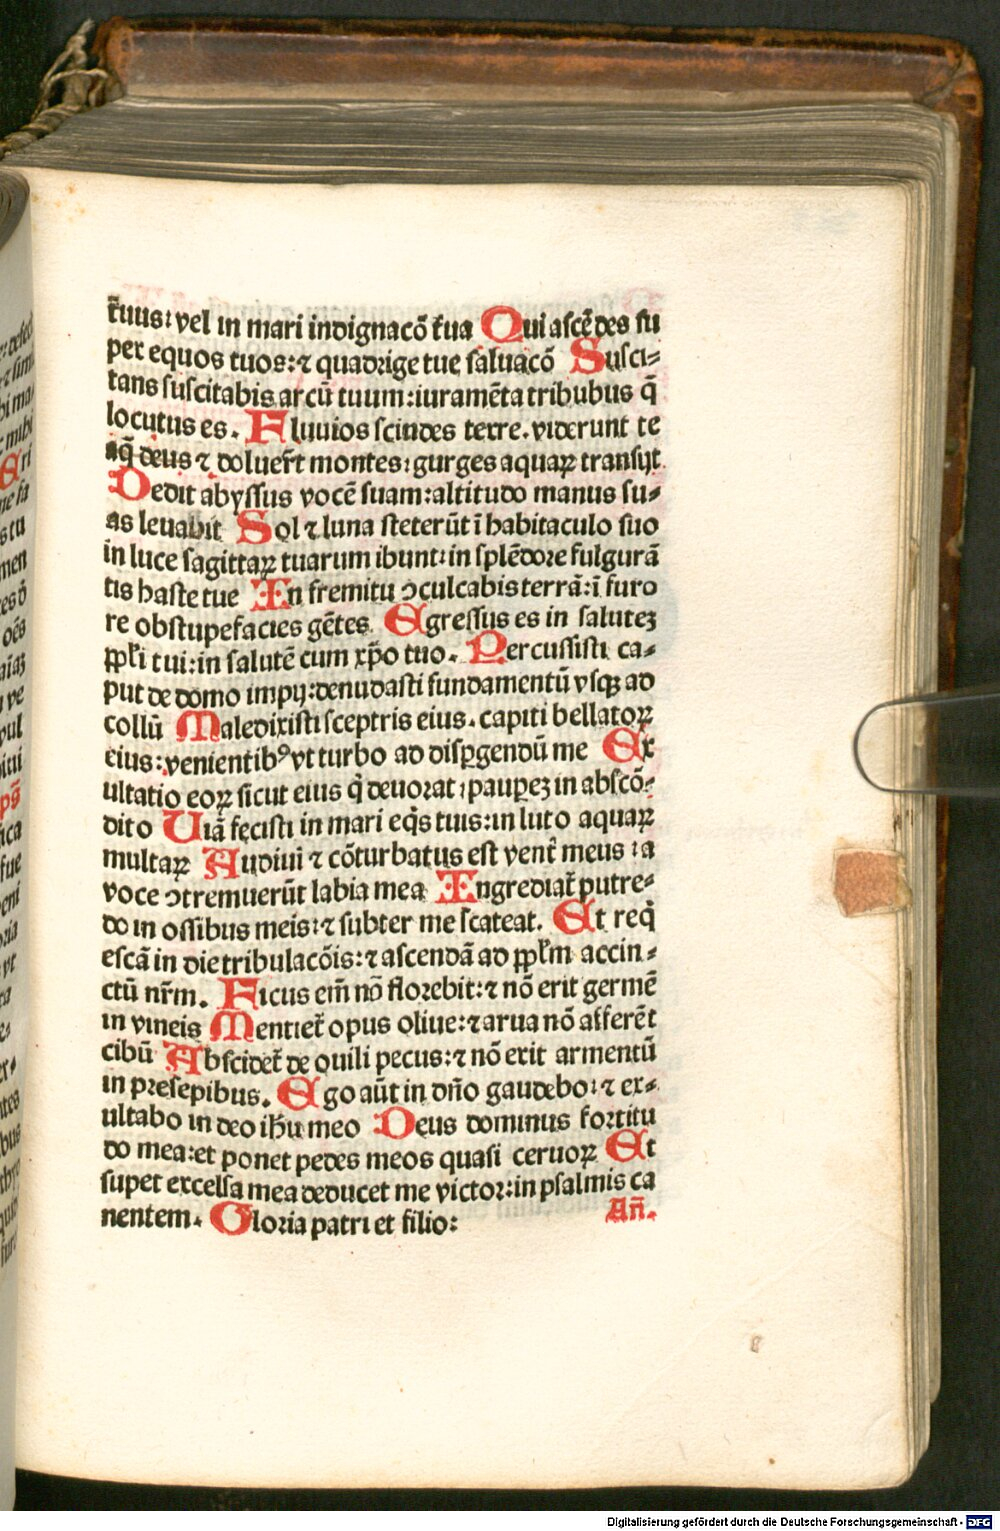 t̃uus: vel in mari indignacõ t̃ua Qui ascẽdes su
per equos tuos: ⁊ quadrige tue saluacõ Susci⸗
tans suscitabis arcũ tuum: iuramẽta tribubus q̃
locutus es. Fluuios scindes terre. viderunt te
aq̃ deus ⁊ doluer̃t montes: gurges aquaꝝ transijt.
Dedit abyssus vocẽ suam: altitudo manus su⸗
as leuabit Sol ⁊ luna steterũt ĩ habitaculo suo
in luce sagittaꝝ tuarum ibunt: in splẽdore fulgurã
tis haste tue In fremitu ɔculcabis terrã: ĩ furo
re obstupefacies gẽtes. Egressus es in saluteʒ
ppl̃i tui: in salutẽ cum xp̃o tuo. Percussisti ca⸗
put de domo impij: denudasti fundamentũ vsqꝫ ad
collũ Maledixisti sceptris eius. capiti bellatoꝝ
eius: venientibꝰ vt turbo ad disꝑgendũ me Ex
ultatio eoꝝ sicut eius q̇ deuorat: pauꝑeʒ in abscõ⸗
dito Uiã fecisti in mari eq̃s tuis: in luto aquaꝝ
multaꝝ Audiui ⁊ cõturbatus est vent̃ meus: a
voce ɔtremuerũt labia mea Ingrediat̃ putre⸗
do in ossibus meis: ⁊ subter me scateat. Et req̇
escã in die tribulacõis: ⁊ ascendã ad ppl̃m accin⸗
ctũ nr̃m. Ficus em̃ nõ florebit: ⁊ nõ erit germẽ
in vineis Mentiet̃ opus oliue: ⁊ arua nõ afferẽt
cibũ Abscidet̃ de ouili pecus: ⁊ nõ erit armentũ
in presepibus. Ego aũt in dño gaudebo: ⁊ ex⸗
ultabo in deo ih̃u meo Deus dominus fortitu
do mea: et ponet pedes meos quasi ceruoꝝ Et
super excelsa mea deducet me victor: in psalmis ca
nentem. Gloria patri et filio: Añ.
Digitalisierung gefördert durch die Deutsche Forschungsgemeinschaft - DFG